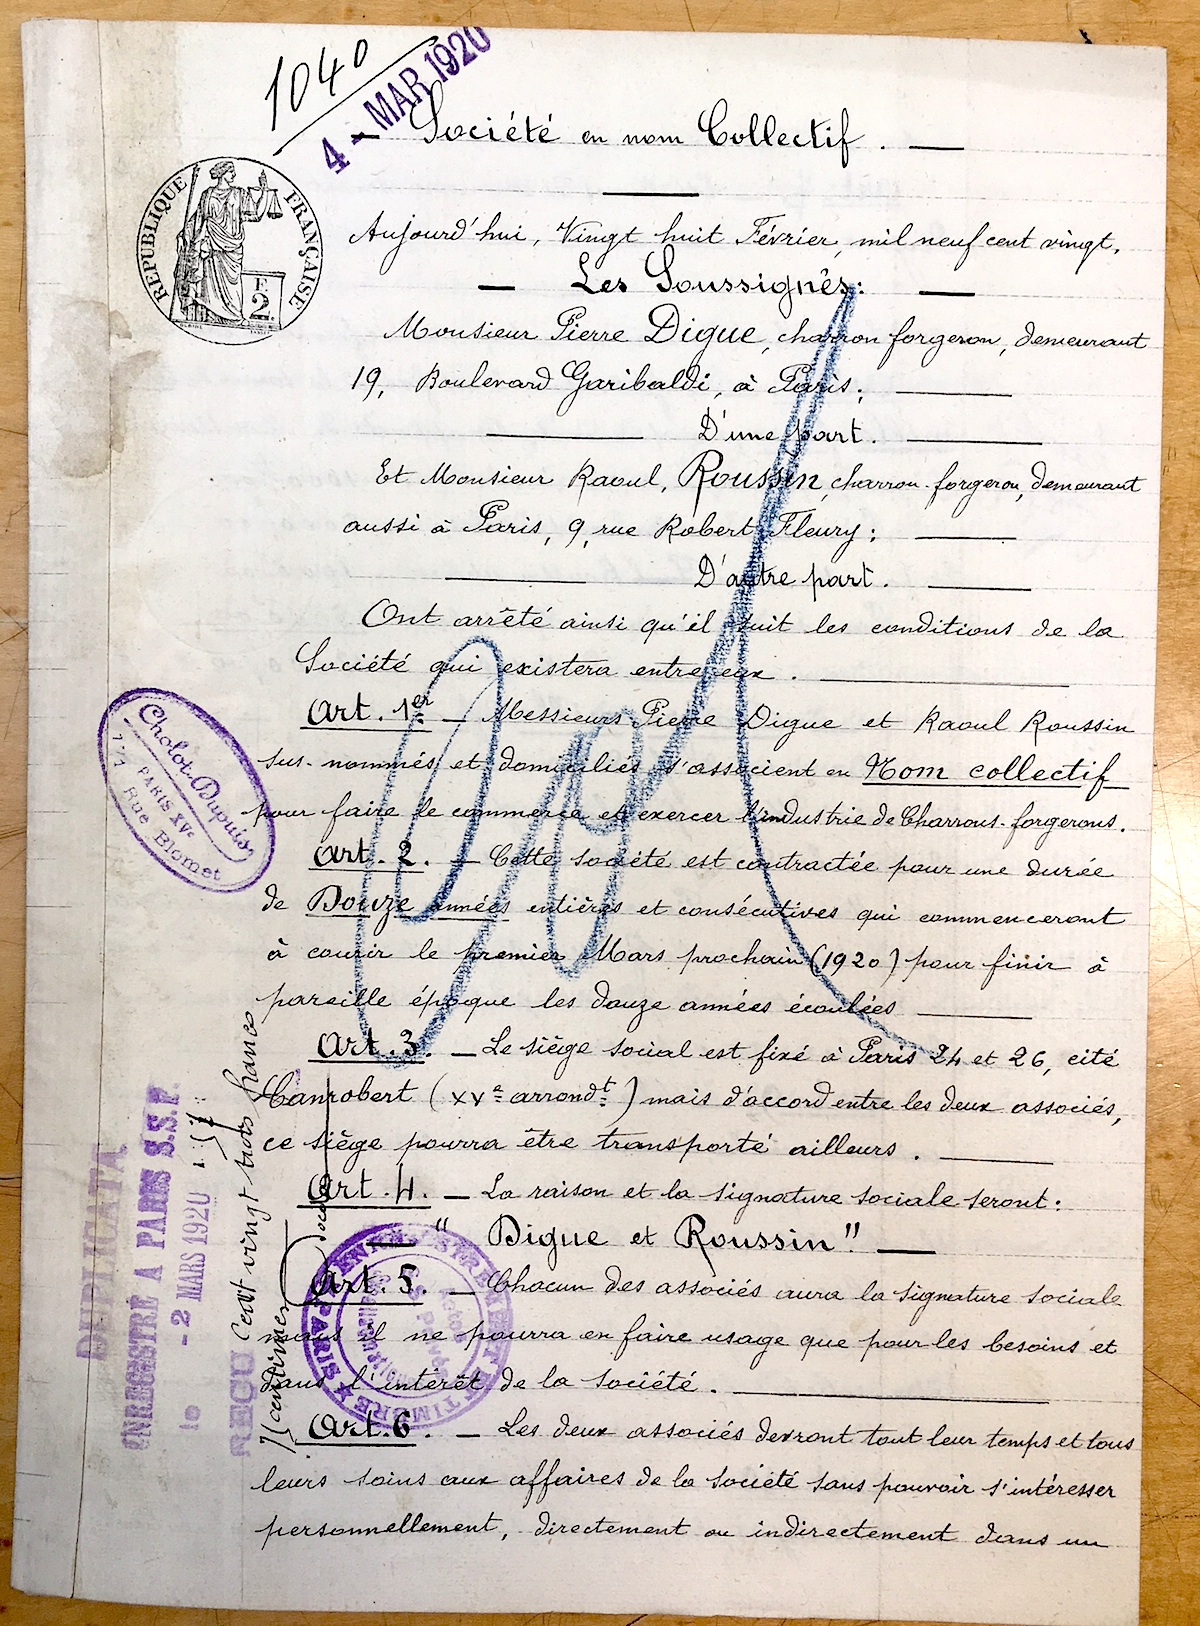 1040
4 - MAR 1920
Société en nom Collectif.
RÉPUBLIQUE FRANÇAISE
F
2.
Aujourd'hui, Vingt huit Février, mil neuf cent vingt.
Les Soussignés:
Monsieur Pierre Digue, charron forgeron, demeurant
19, Boulevard Garibaldi, à Paris;
D'une part.
Et Monsieur Raoul, Roussin, charron-forgeron, demeurant
aussi à Paris, 9, rue Robert Fleury;
D'autre part.
Ont arrêté ainsi qu'il suit les conditions de la
Société qui existera entre eux.
Art. 1er. — Messieurs Pierre Digue et Raoul Roussin
sus-nommés et domiciliés s'associent en Nom collectif
pour faire le commerce et exercer l'industrie de Charrons-forgerons.
Art. 2. — Cette société est contractée pour une durée
de Douze années entières et consécutives qui commenceront
à courir le premier Mars prochain (1920) pour finir à
pareille époque les douze années écoulées
Art. 3. — Le siège social est fixé à Paris 24 et 26, cité
Canrobert (XVe arrondt) mais d'accord entre les deux associés,
ce siège pourra être transporté ailleurs.
Art. 4. — La raison et la signature sociale seront:
— " Digue et Roussin" —
Art. 5. — Chacun des associés aura la signature sociale
mais il ne pourra en faire usage que pour les besoins et
dans l'intérêt de la société.
Art. 6. — Les deux associés devront tout leur temps et tous
leurs soins aux affaires de la société sans pouvoir s'intéresser
personnellement, directement ou indirectement dans un
Cholot-Dupuis
171
PARIS XVe
Rue Blomet
DUPLICATA
ENREGISTRÉ A PARIS S.S.P.
le - 2 MARS 1920
REÇU Cent vingt trois francs
centimes
ENREGISTREMENT
TIMBRE
PARIS